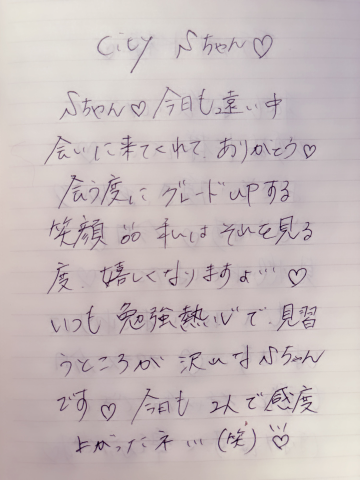 City Sちゃん♡
Sちゃん♡今日も遠い中
会いに来てくれて、ありがとう♡
会う度に グレードupする
笑顔 私はそれを見る
度、嬉しくなりますよ…♡
いつも 勉強熱心で、見習
うところが 沢山なSちゃん
です♡ 今日も 2人で感度
よかったネ…(笑)♡